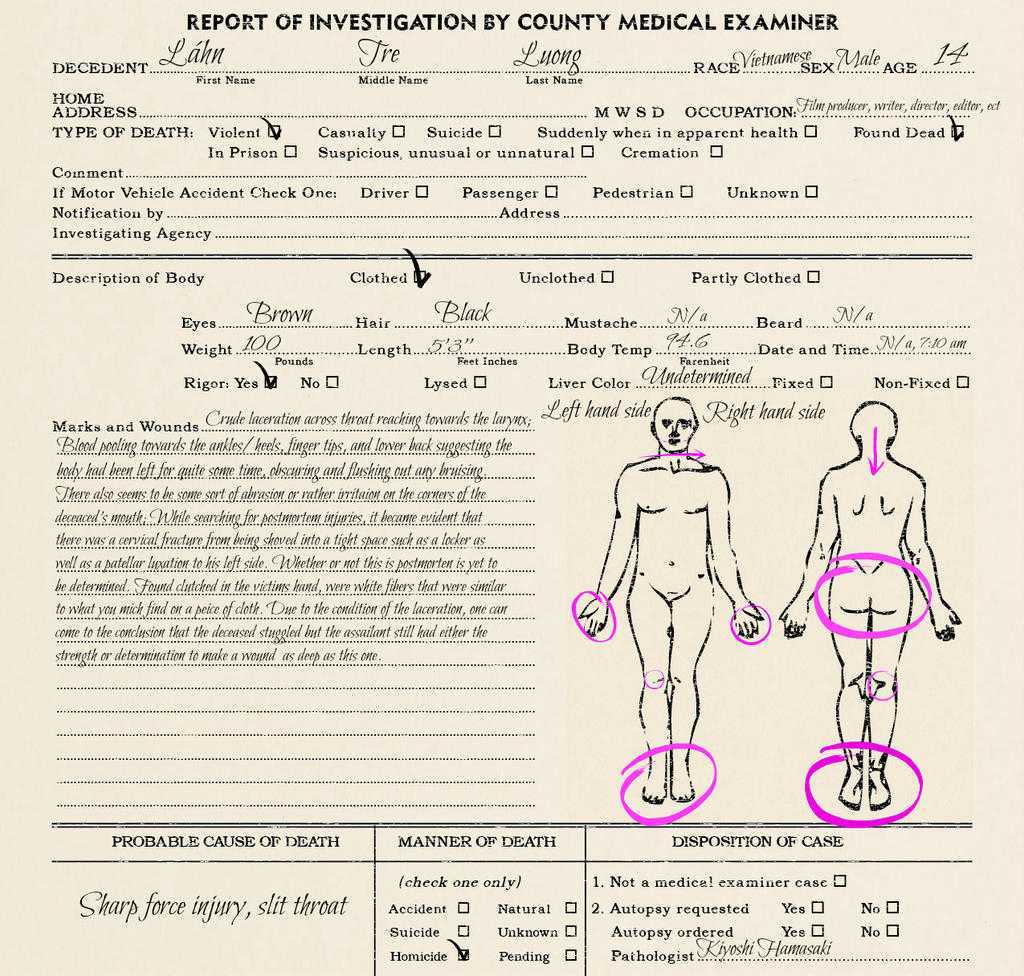 REPORT OF INVESTIGATION BY COUNTY MEDICAL EXAMINER
DECEDENT Láhn Tre Luong RACE Vietnamese SEX Male AGE 14
First Name Middle Name Last Name
HOME
ADDRESS M W S D OCCUPATION: Film producer, writer, director, editor, ect
TYPE OF DEATH: Violent Casualty Suicide Suddenly when in apparent health Found Dead
In Prison Suspicious, unusual or unnatural Cremation
Comment
If Motor Vehicle Accident Check One: Driver Passenger Pedestrian Unknown
Notification by Address
Investigating Agency
Description of Body Clothed Unclothed Partly Clothed
Eyes Brown Hair Black Mustache N/a Beard N/a
Weight 100 Length 5'3" Body Temp 94.6 Date and Time N/a, 7:10 am
Pounds Feet Inches Farenheit
Rigor: Yes No Lysed Liver Color Undetermined Fixed Non-Fixed
Left hand side Right hand side
Marks and Wounds Crude laceration across throat reaching towards the larynx;
Blood pooling towards the ankles/ heels, finger tips, and lower back suggesting the
body had been left for quite some time, obscuring and flushing out any bruising.
There also seems to be some sort of abrasion or rather irritaion on the corners of the
deceased's mouth; While searching for postmortem injuries, it became evident that
there was a cervical fracture from being shoved into a tight space such as a locker as
well as a patellar luxation to his left side. Whether or not this is postmorten is yet to
be determined. Found clutched in the victims hand, were white fibers that were similar
to what you mich find on a peice of cloth. Due to the condition of the laceration, one can
come to the conclusion that the deceased stuggled but the assailant still had either the
strength or determination to make a wound as deep as this one.
PROBABLE CAUSE OF DEATH MANNER OF DEATH DISPOSITION OF CASE
(check one only) 1. Not a medical examiner case
Sharp force injury, slit throat
Accident Natural 2. Autopsy requested Yes No
Suicide Unknown Autopsy ordered Yes No
Homicide Pending Pathologist Kiyoshi Hamasaki